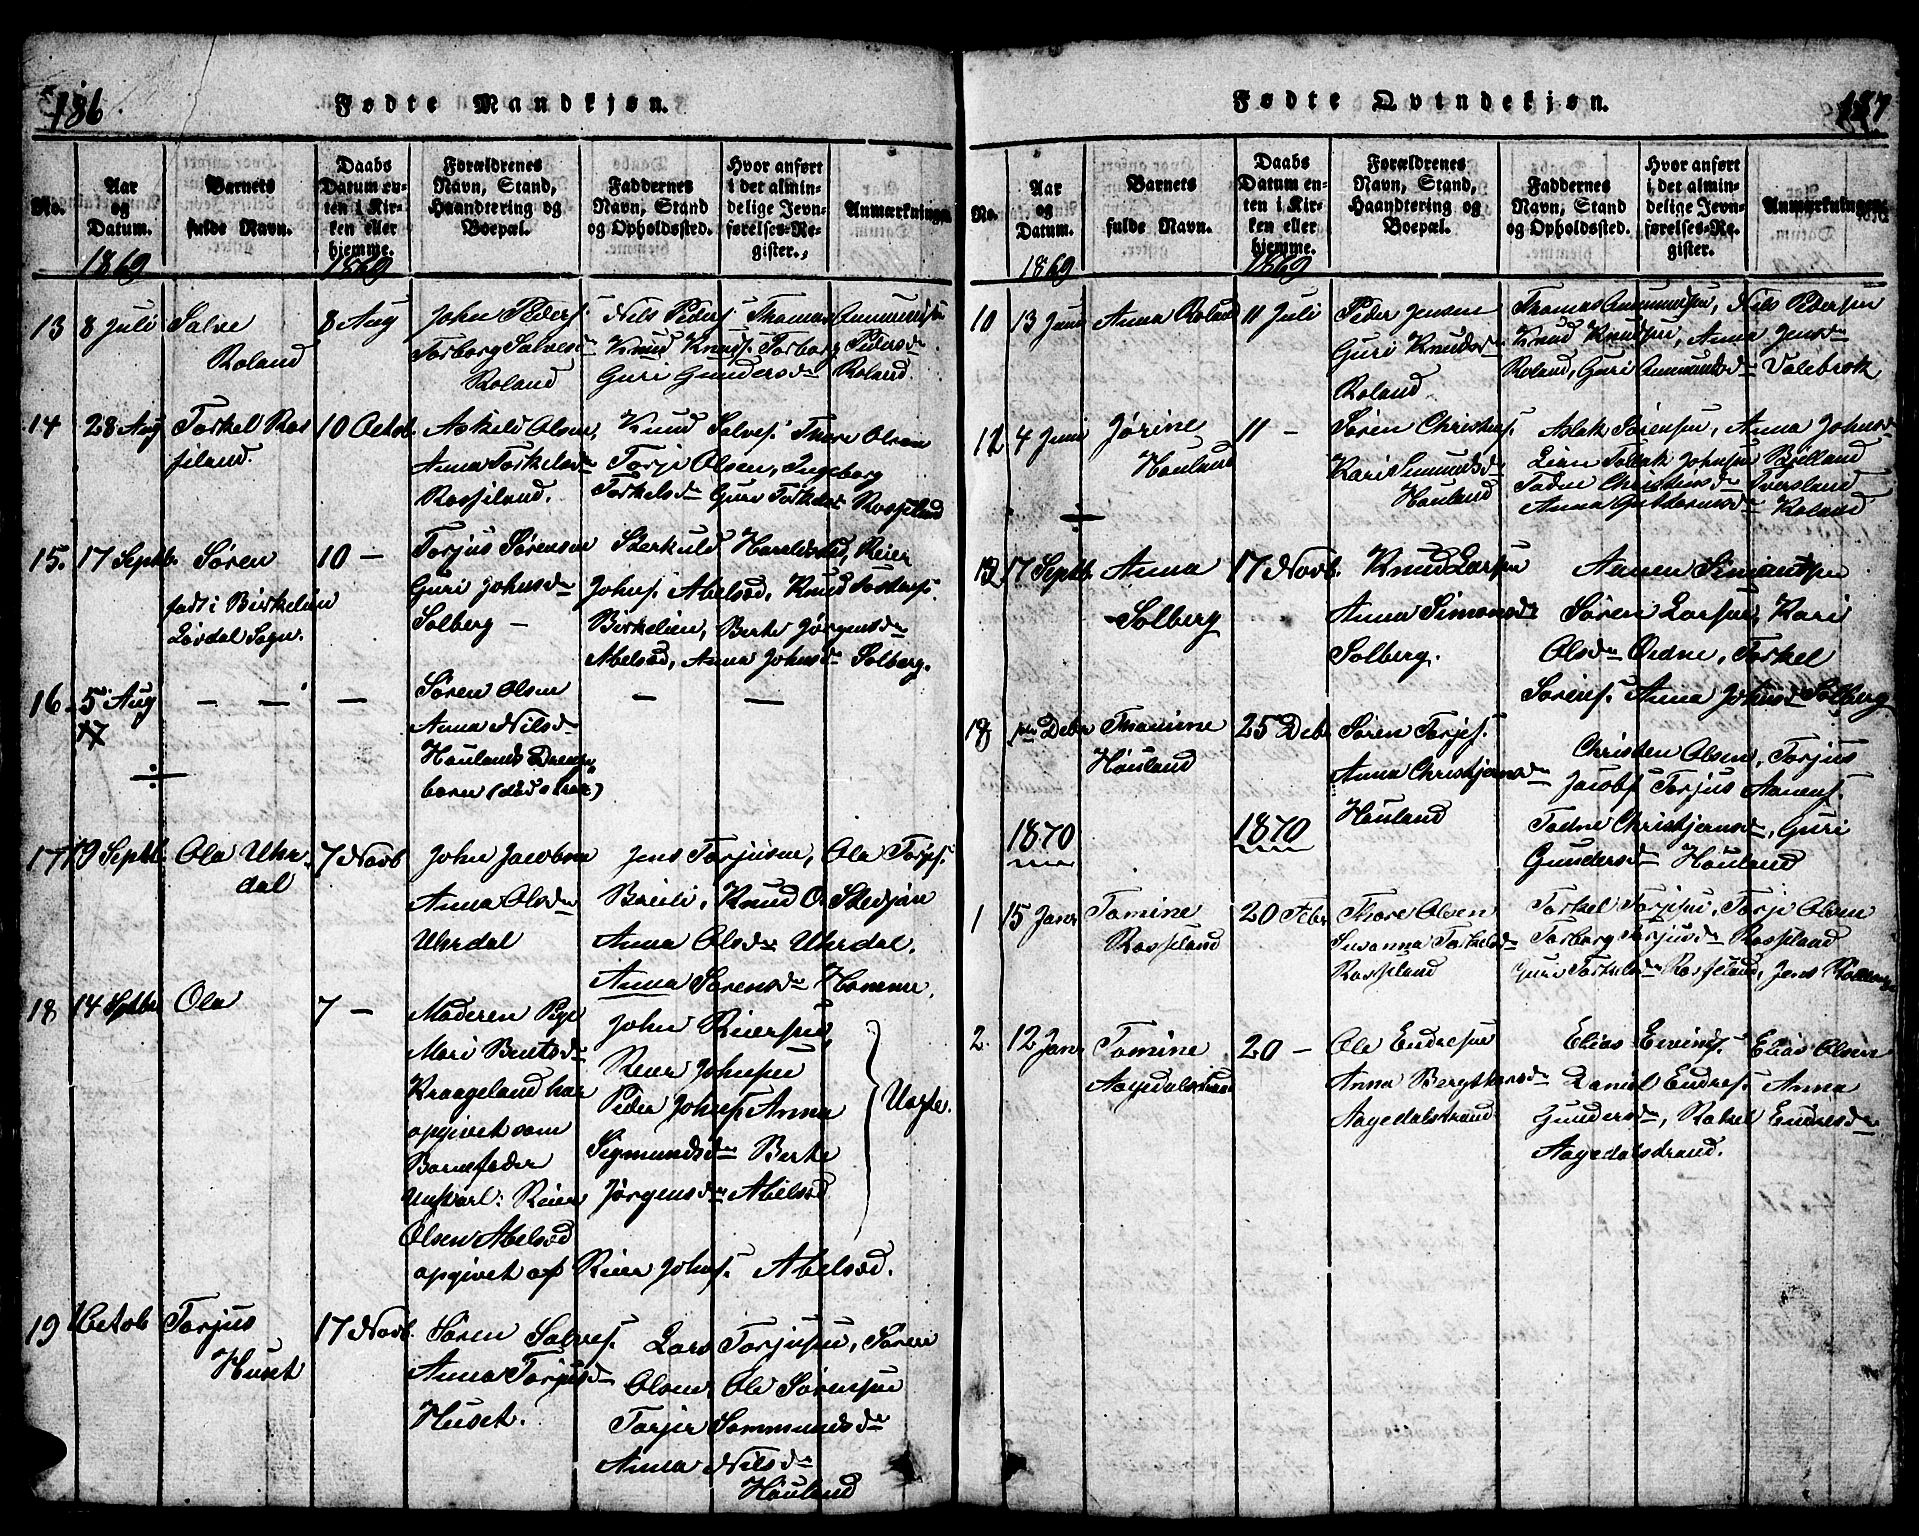 186.
Fødte Mandkjøn.
No.
Aar og Datum.
Barnets fulde Navn.
Daabs Datum enten i Kirken eller hjemme.
Forældrenes Navn, Stand, Haandtering og Boepæl.
Faddernes Navn, Stand og Opholdssted.
Hvor anført i det almindelige Jevnførelses-Register.
Anmærkninger.
1869
1869
13 8 Juli Salve
Roland
8 Aug
John Peders.
Torborg Salvesdr
Roland
Nils Peders. Thomas Gunmundsen
Knud Knuds. Torborg Pedersdr
Guri Gundersdr Roland.
14 28 Aug Torkel Ros
seland.
10 Octob.
Askeld Olsen,
Anna Torkelsdr
Rosseland.
Knud Salves. Thore Olsen
Torje Olsen, Ingeborg
Torkelsdr Guri Torkelsdr Rosseland
15. 17 Septb. Søren
født i Birkelien
Løvdal Sogn.
10 —
Torjus Sørensen
Guri Johnsdr
Solberg —
Sterkuld Hareldstad, Reier
Johns. Abelsød, Knud
Birkelien, Berte Jørgensdr
Abelsød, Anna Johnsdr Solberg.
16. 5 Aug
— — —
Søren Olsen
Anna Nilsdr
Houland
barn
— —
÷
17 19 Septb. Ola Uhr
dal
7 Novb
John Jacobsen
Anna Olsdr
Uhrdal
Jens Torjusen, Ole Torjes.
Breili, Knud O. Stedjan
Anna Olsdr Uhrdal.
Anna Sørensdr Homme.
18 14 Septbr Ola
7 —
Moderen Pige
Mari Bentsdr
Kraageland har
opgivet som
Barnefader
Ungkarl: Reier
Olsen Abelsød
opgivet af Reier Johns. Abelsød.
John Reiersen,
Reier Johnsen
Peder Johns. Anna
Sigmundsdr Berte
Jørgensdr Abelsød
Uægte.
19 Octob Torjus
Huset
17 Novb.
Søren Salves.
Anna Torjusdr
Huset.
Lars Torjusen, Søren
Olsen, Ole Sørensen
Torjer Sommundsdr
Anna Nilsdr
Houland
187
Fødte Qvindekjøn.
No.
Aar og Datum.
Barnets fulde Navn.
Daabs Datum enten i Kirken eller hjemme.
Forældrenes Navn, Stand, Haandtering og Boepæl.
Faddernes Navn, Stand og Opholdssted.
Hvor anført i det almindelige Jevnførelses-Register.
Anmærkninger.
1869
1869
10 13 Juni Anna Roland 11 Juli
Peder Jensen
Guri Knudsdr
Roland
Thomas Gunmundsen, Nils Pedersen
Knud Knudsen, Anna Jensdr
Roland, Guri Gunmundsdr Valebrok
12 4 Juni Jørine
Houland
11 —
Søren Christens.
Kari Semundsdr
Houland
Aslak Sørensen, Anna Johnsdr
Lien Tollak Johnsen Bjelland
Tadne Christensdr Iversland
Anna Guttormsdr Roland
÷
17 Septb. Anna
Solberg
17 Novb.
Knud Larsen
Anna Simonsdr
Solberg.
Aanen Simontsen
Søren Larsen, Kari
Olsdr Oidne, Torkel
Sørens. Anna Johnsdr Solberg
18 Debr Thomine
Houland
25 Deb
Søren Torjes.
Anna Christjernsdr
Houland
Christen Olsen, Torjus
Jacobs. Torjus Aanens.
Tadne Christjernsdr, Guri
Gundersdr Houland
1870
1870
1 15 Janr Tomine
Rossland
20 Febr
Thore Olsen
Susanna Torkelsdr
Rossland
Torkel Torjesen, Torje Olsen
Torborg Torjusdr Rossland
Guri Torkelsdr Rosseland, Jens
2. 12 Janr Tomine
Aagedalstrand
20 —
Ole Endresen
Anna Bergthorsdr
Aagedalstrand
Elias Eivinds. Elias Olsen
Daniel Endres. Anna
Gundersdr, Rakel Endresdr
Aagedalstrand.